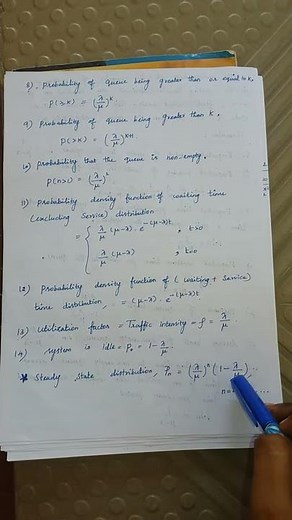 8). Probability of queue being greater than or equal to k.
P(≥K) = (λ/μ)^K
9) Probability of queue being greater than K.
P(>K) = (λ/μ)^{K+1}
10) Probability that the queue is non-empty.
P(n>1) = (λ/μ)^2
11) Probability density function of waiting time
(excluding Service) distribution
= { λ/μ (μ-λ) . e^{-(μ-λ)t} , t>0
λ/μ (μ-λ) , t=0
12) Probability density function of (waiting + Service)
time distribution = (μ-λ) . e^{-(μ-λ)t}
13) Utilization factor = Traffic intensity = ρ = λ/μ
14) System is Idle = P₀ = 1 - λ/μ
* Steady State distribution, Pₙ = (λ/μ)^n (1 - λ/μ)
n=